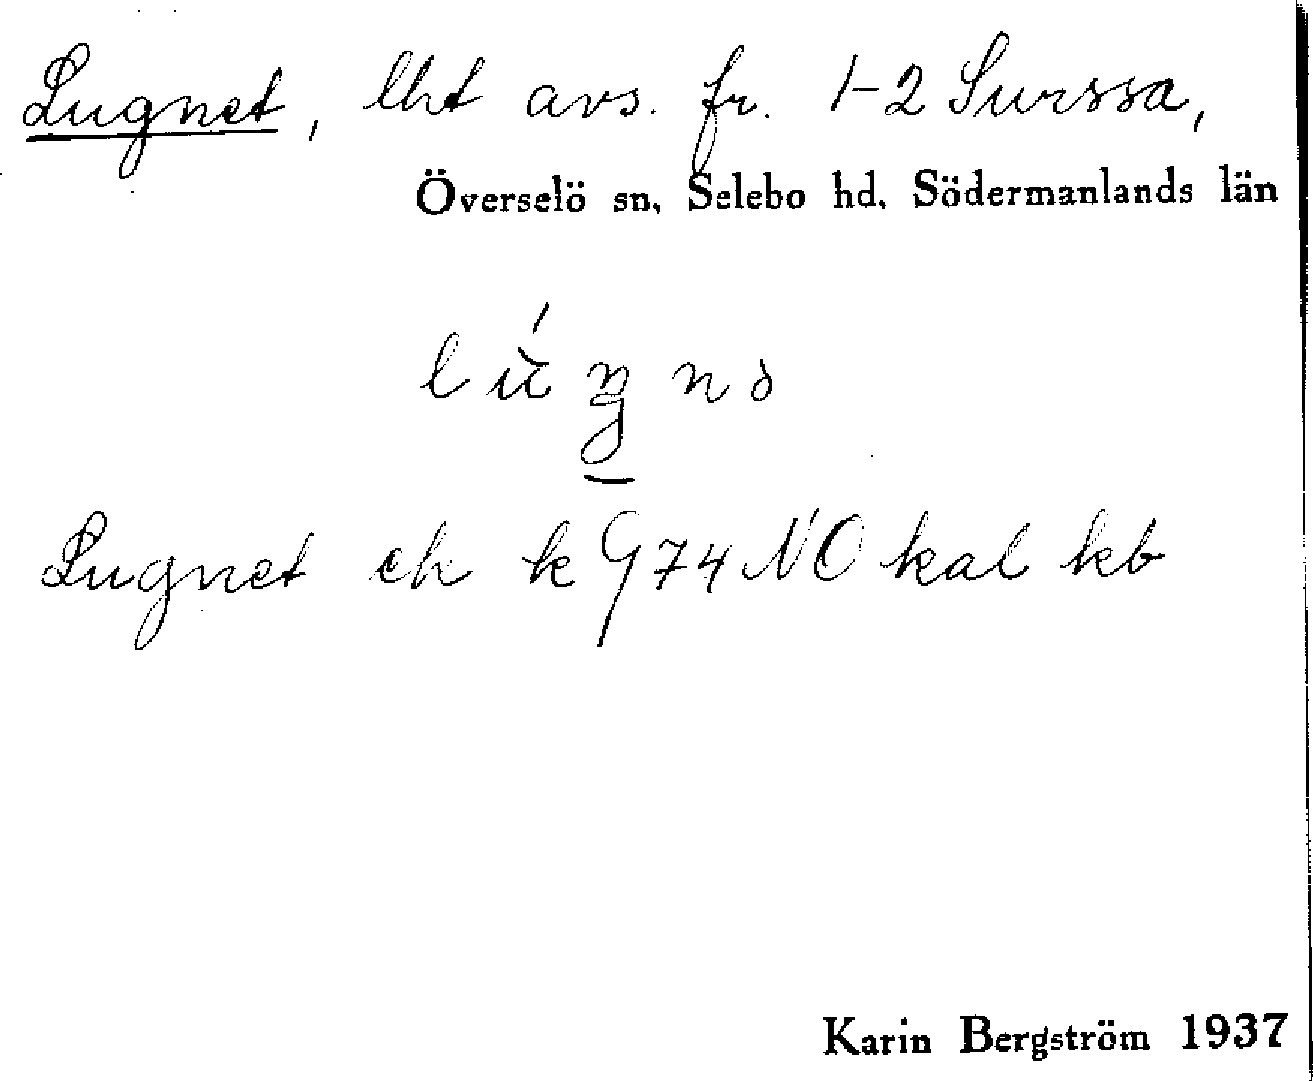 Lugnet, lht avs. fr. 1-2 Surssa,
Överselö sn, Selebo hd, Södermanlands län
Lugnet ek k G 74 NO kal kb
Karin Bergström 1937